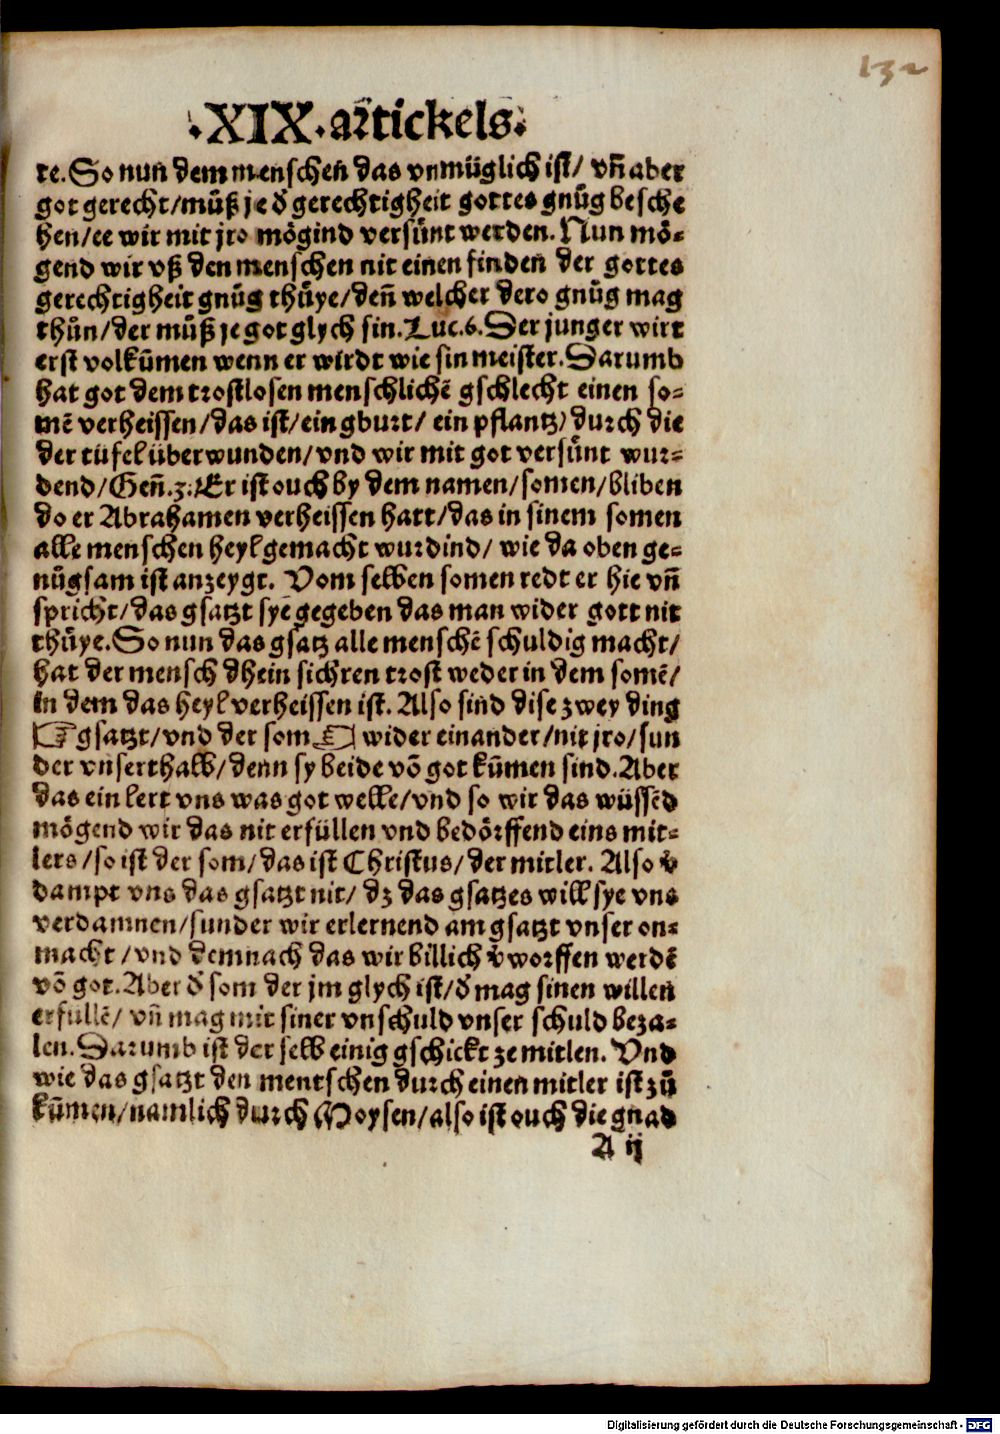 132
.XIX.artickels.
te.So nun dem menschen das vnmüglich ist/ vñ aber
got gerecht/můß je d̕ gerechtigheit gottes gnůg besche
hen/ee wir mit jro mögind versünt werden.Nun mö⸗
gend wir vß den menschen nit einen finden der gottes
gerechtigheit gnůg thůye/deñ welcher dero gnůg mag
thůn/der můß je got glych sin.Luc.6.Der junger wirt
erst volkum̃en wenn er wirdt wie sin meister.Darumb
hat got dem trostlosen menschlichẽ gschlecht einen so⸗
mẽ verheissen/das ist/ein gburt/ ein pflantz/durch die
der tüfel überwunden/vnd wir mit got versünt wur⸗
dend/Geñ.3.Er ist ouch by dem namen/somen/bliben
do er Abrahamen verheissen hatt/das in sinem somen
alle menschen heyl gemacht wurdind/ wie da oben ge⸗
nůgsam ist anzeygt. Vom selben somen redt er hie vñ
spricht/das gsatzt sye gegeben das man wider gott nit
thůye.So nun das gsatz alle menschẽ schuldig macht/
hat der mensch dhein sichren trost weder in dem somẽ/
in dem das heyl verheissen ist. Also sind dise zwey ding
☞gsatzt/vnd der som☜ wider einander/nit jro/sun
der vnserthalb/denn sy beide võ got kum̃en sind.Aber
das ein lert vns was got welle/vnd so wir das wüssẽd
mögend wir das nit erfüllen vnd bedörffend eins mit⸗
lers/so ist der som/das ist Christus/der mitler. Also v̕
dampt vns das gsatzt nit/ dz das gsatzes will sye vns
verdamnen/sunder wir erlernend am gsatzt vnser on⸗
macht /vnd demnach das wir billich v̕worffen werdẽ
võ got.Aber d̕ som der jm glych ist/d̕ mag sinen willen
erfüllẽ/ vñ mag mit siner vnschuld vnser schuld beza⸗
len.Darumb ist der selb einig gschickt ze mitlen. Vnd
wie das gsatzt den mentschen durch einen mitler ist zů
kum̃en/namlich durch Moysen/also ist ouch die gnad
A ij
Digitalisierung gefördert durch die Deutsche Forschungsgemeinschaft - DFG